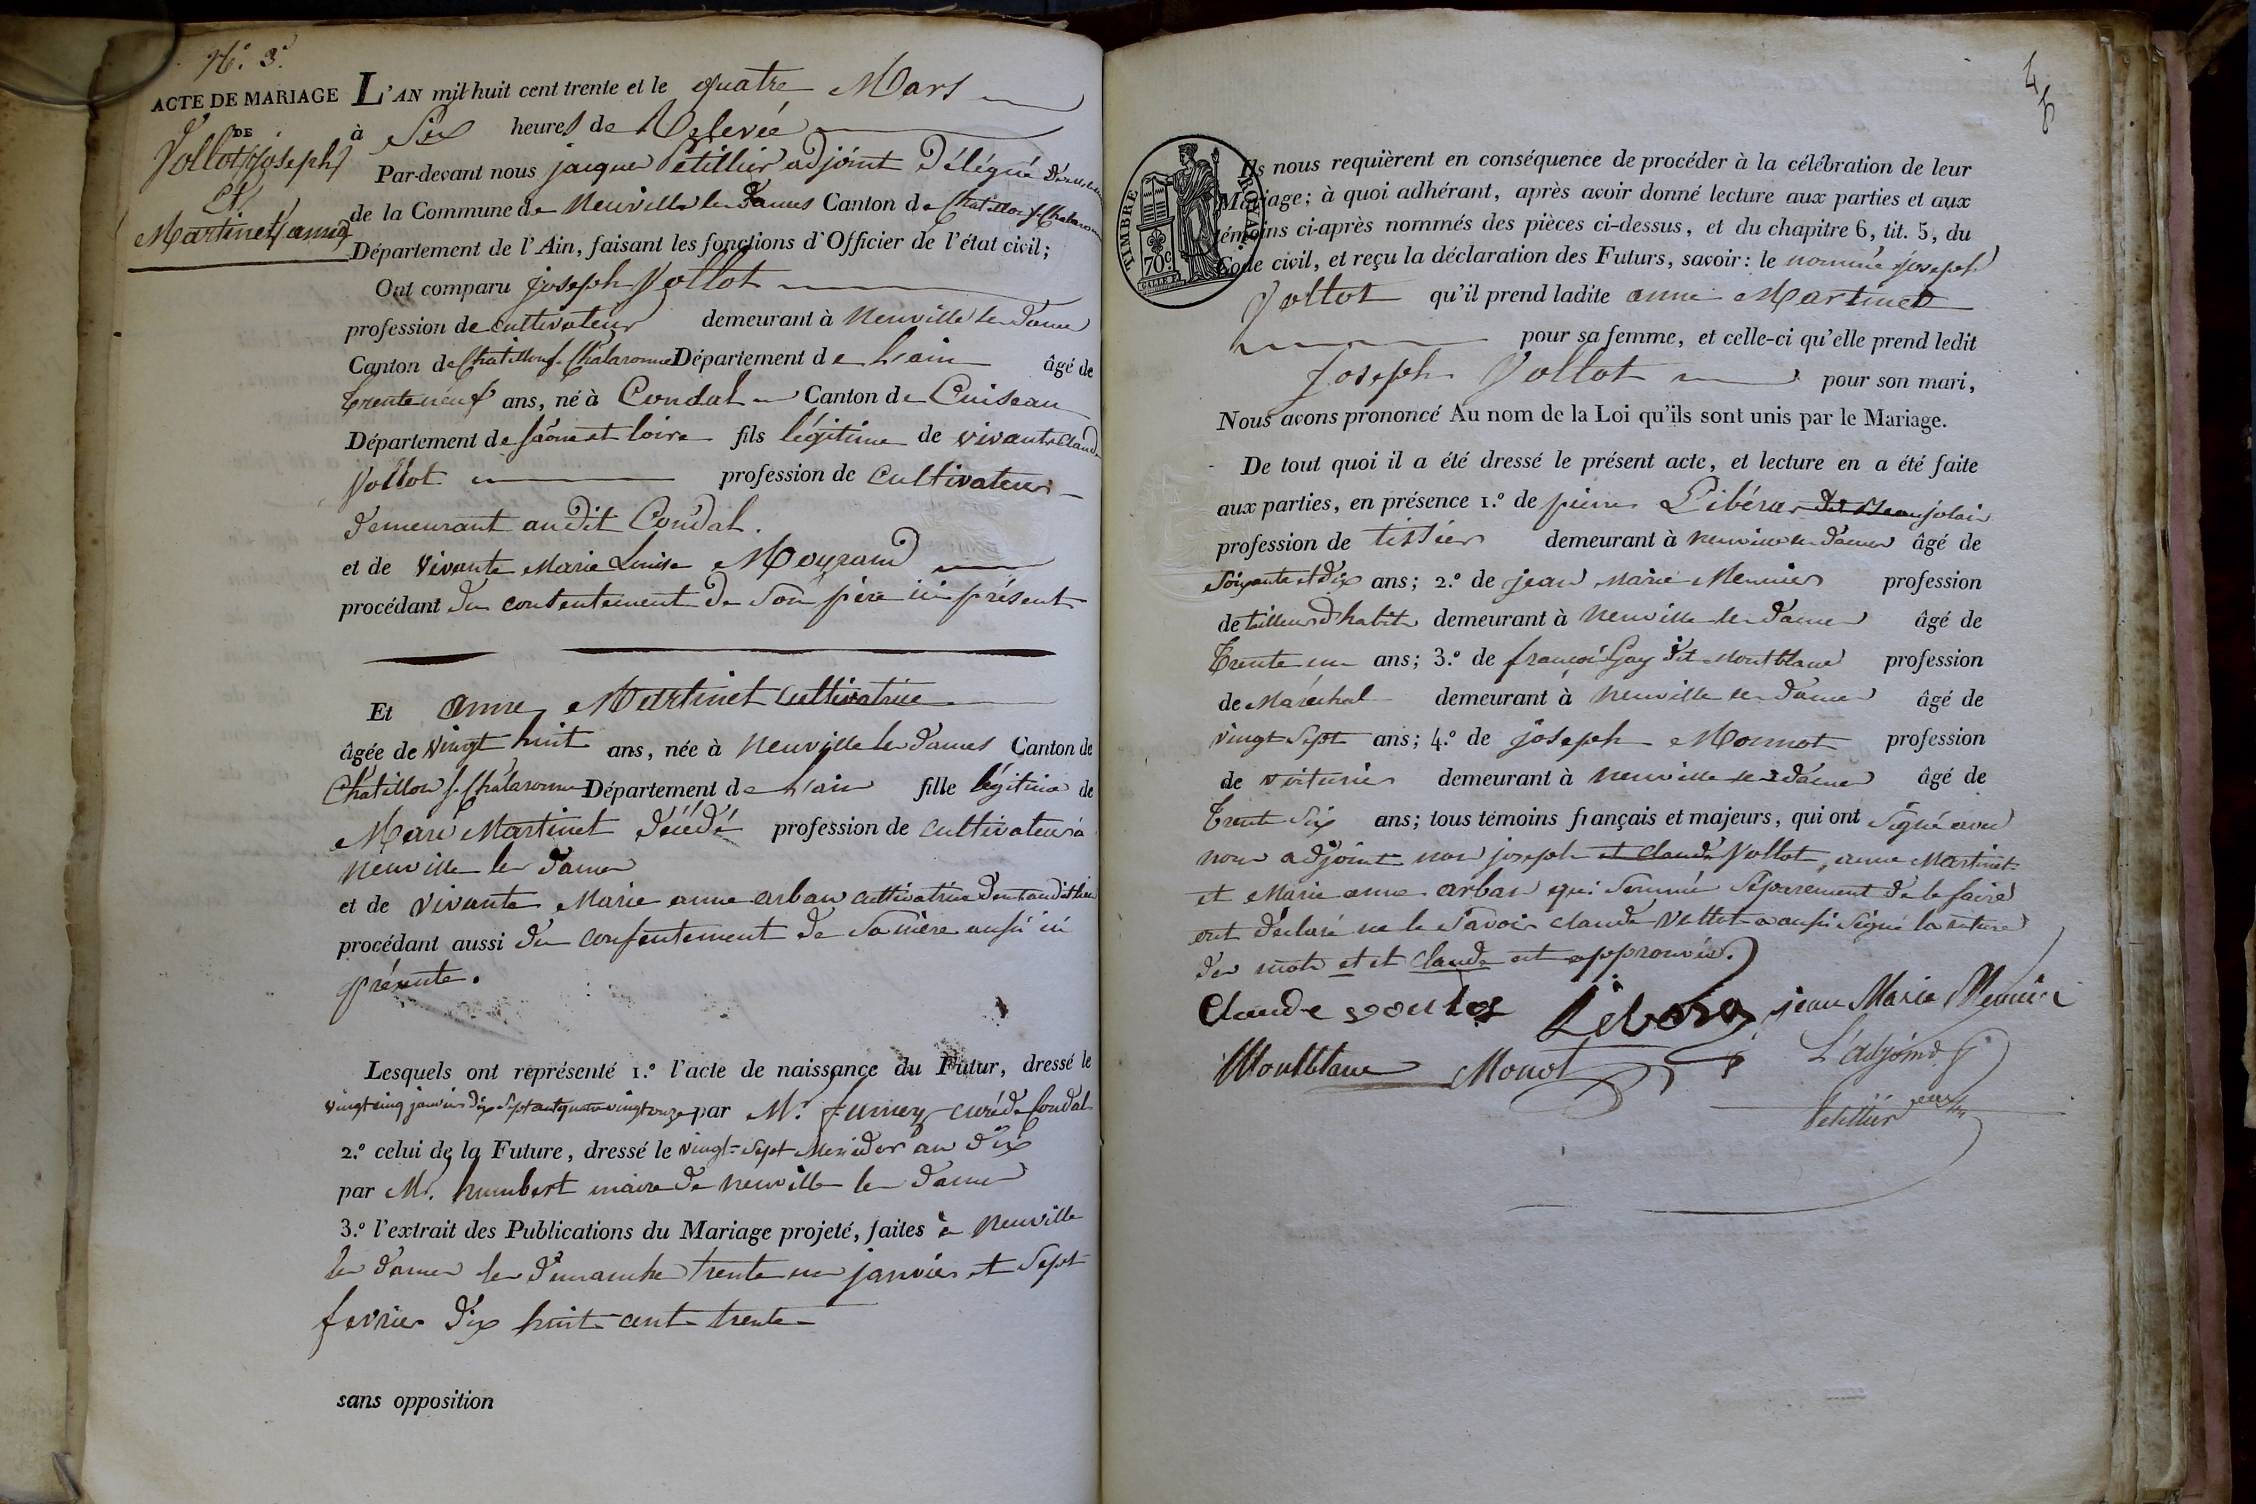 N.° 3.
ACTE DE MARIAGE
DE
Vollot (joseph)
et
Martinet (anne)
L'AN mil-huit cent trente et le quatre Mars
à Six heures de Relevée
Par-devant nous jacque Petillier adjoint Délégué
de la Commune de Neuville les Dames Canton de Chatillon s. Chalaronne
Département de l'Ain, faisant les fonctions d'Officier de l'état civil;
Ont comparu joseph Vollot
profession de cultivateur demeurant à Neuville les Dames
Canton de Chatillon s. Chalaronne Département de L'ain âgé de
trente neuf ans, né à Condal Canton de Cuiseau
Département de saône et loire fils légitime de vivant Claude
Vollot profession de cultivateur
demeurant audit Condal.
et de vivante Marie Louise Moyrand
procédant du contentement de Son père ici présent
Et anne Martinet cultivatrice
âgée de vingt huit ans, née à Neuville les Dames Canton de
Châtillon s. Chalaronne Département de L'ain fille légitime de
Marie Martinet décédé profession de cultivateur à
Neuville les Dames
et de vivante Marie anne arban cultivatrice
procédant aussi du consentement de Sa mère aussi ici
présente.
Lesquels ont représenté 1.° l'acte de naissance du Futur, dressé le
vingt cinq janvier dix sept cent quatre vingt onze par Mr. curé de Condal
2.° celui de la Future, dressé le vingt-sept Messidor an dix
par Mr. humbert maire de Neuville les Dames
3.° l'extrait des Publications du Mariage projeté, faites à Neuville
les Dames les Dimanche trente un janvier et Sept
fevrier dix huit cent trente
sans opposition
4
TIMBRE ROYAL
70 c
Ils nous requièrent en conséquence de procéder à la célébration de leur
Mariage; à quoi adhérant, après avoir donné lecture aux parties et aux
témoins ci-après nommés des pièces ci-dessus, et du chapitre 6, tit. 5, du
Code civil, et reçu la déclaration des Futurs, savoir: le nommé joseph
Vollot qu'il prend ladite anne Martinet
pour sa femme, et celle-ci qu'elle prend ledit
Joseph Vollot pour son mari,
Nous avons prononcé Au nom de la Loi qu'ils sont unis par le Mariage.
De tout quoi il a été dressé le présent acte, et lecture en a été faite
aux parties, en présence 1.° de pierre Libéras dit Beaujolais
profession de tissier demeurant à Neuville les Dames âgé de
soixante et dix ans; 2.° de jean Marie Meunier profession
de tailleur d'habits demeurant à Neuville les Dames âgé de
trente un ans; 3.° de françois Gay dit Montblanc profession
de Maréchal demeurant à Neuville les Dames âgé de
vingt Sept ans; 4.° de joseph Monnot profession
de voiturier demeurant à Neuville les Dames âgé de
trent Six ans; tous témoins français et majeurs, qui ont Signé avec
nous adjoint non joseph et claude Vollot, anne Martinet
et Marie anne arban qui Sommés Séparement de le faire
ont déclaré ne le Savoir claude Vollot a aussi Signé la rature
des mots et et claude est approuvée.
Claude Libera jean Marie Meunier
Montblanc Monot L'adjoint
Petillier